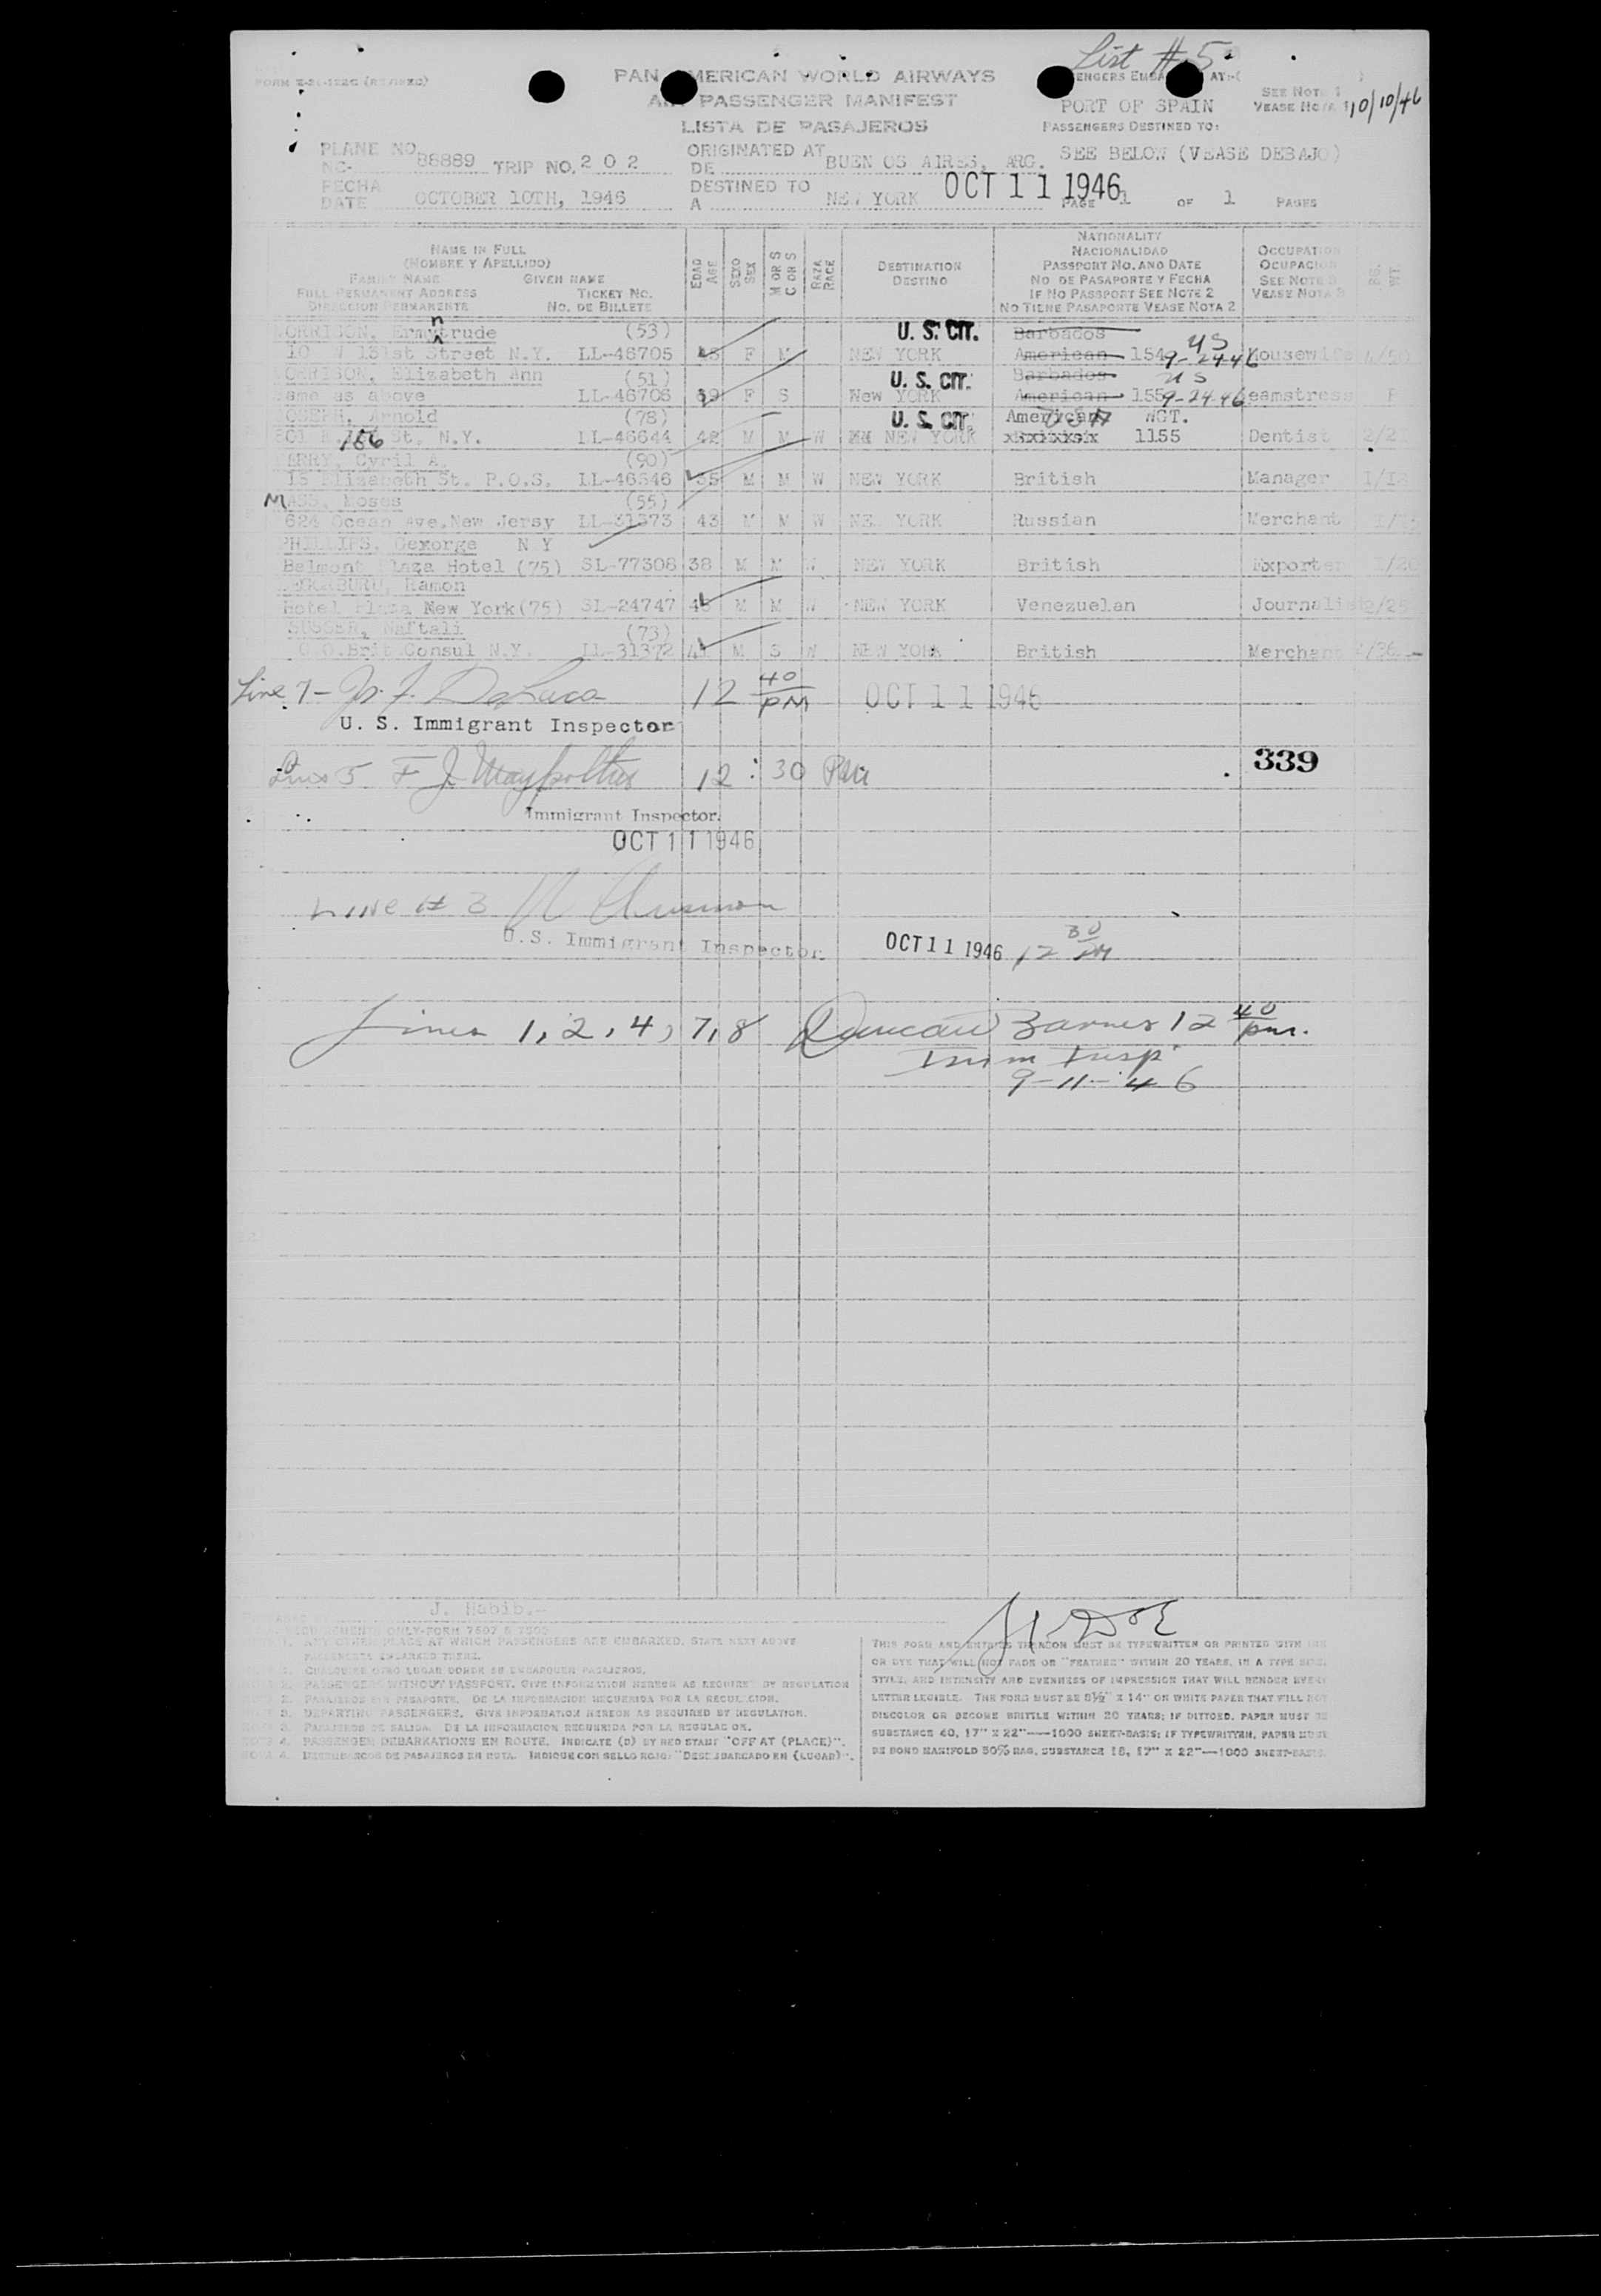 List # 5
PAN AMERICAN WORLD AIRWAYS
PASSENGER MANIFEST
LISTA DE PASAJEROS
AT:-(
PORT OF SPAIN
PASSENGERS DESTINED TO:
SEE NOTE 1
VEASE NOTA 1
10/10/46
SEE BELOW (VEASE DEBAJO)
PLANE NO. 88889 TRIP NO. 2 0 2
NO.
ORIGINATED AT
DE BUENOS AIRES, ARG.
FECHA
DATE OCTOBER 10TH, 1946
DESTINED TO
A NEW YORK
OCT 11 1946
PAGE 1 OF 1 PAGES
NAME IN FULL
(NOMBRE Y APELLIDO)
FAMILY NAME GIVEN NAME
FULL PERMANENT ADDRESS TICKET NO.
DIRECCION PERMANENTE NO. DE BILLETE
EDAD AGE
SEXO SEX
M OR S C OR S
RAZA RACE
DESTINATION
DESTINO
NATIONALITY
NACIONALIDAD
PASSPORT NO. AND DATE
NO DE PASAPORTE Y FECHA
IF NO PASSPORT SEE NOTE 2
NO TIENE PASAPORTE VEASE NOTA 2
OCCUPATION
OCUPACION
SEE NOTE 3
VEASE NOTA 3
MORRISON, Ermyntrude (53) U. S. CIT. Barbados US
10 W 131st Street N.Y. LL-46705 F M NEW YORK American 154 9-24-46 Housewife
MORRISON, Elizabeth Ann (51) U. S. CIT. Barbados US
Same as above LL-46706 F S New YORK American 155 9-24-46 Seamstress
JOSEPH, Arnold (78) U. S. CIT. American USA NGT.
156 St. N.Y. LL-46644 42 M M W NEW YORK 1155 Dentist
Cyril A. (90)
15 Elizabeth St. P.O.S. LL-46646 35 M M W NEW YORK British Manager
MASS, Moses (55)
624 Ocean Ave. New Jersy LL-31373 43 M M W NEW YORK Russian Merchant
PHILLIPS, Gexorge N Y
Belmont Plaza Hotel (75) SL-77308 38 M M W NEW YORK British Exporter
Ramon
Hotel Plaza New York (75) SL-24747 M M W NEW YORK Venezuelan Journalist
SUSSER, Naftali (73)
C.O. Brit Consul N.Y. LL-31372 41 M S W NEW YORK British Merchant
Line 7- 12 40 PM OCT 11 1946
U. S. Immigrant Inspector
339
Line 5 F J 12:30 PM
Immigrant Inspector.
OCT 11 1946
LINE # 3
U.S. Immigrant Inspector OCT 11 1946 12 30 PM
Lines 1, 2, 4, 7, 8 Duncan Barnes 12 40 pm.
Imm Insp
9-11-46
J. Habib.-
REQUIREMENTS ONLY-FORM 7507 & 7509
1. ANY OTHER PLACE AT WHICH PASSENGERS ARE EMBARKED, STATE NEXT ABOVE
PASSENGERS EMBARKED THERE.
1. CUALQUIER OTRO LUGAR DONDE SE EMBARQUEN PASAJEROS.
2. PASSENGERS WITHOUT PASSPORT. GIVE INFORMATION HEREON AS REQUIRED BY REGULATION
2. PASAJEROS SIN PASAPORTE. DE LA INFORMACION REQUERIDA POR LA REGULACION.
3. DEPARTING PASSENGERS. GIVE INFORMATION HEREON AS REQUIRED BY REGULATION.
3. PASAJEROS DE SALIDA. DE LA INFORMACION REQUERIDA POR LA REGULACION.
4. PASSENGER DEBARKATIONS EN ROUTE. INDICATE (D) BY RED STAMP "OFF AT (PLACE)".
4. DESEMBARCOS DE PASAJEROS EN RUTA. INDIQUE CON SELLO ROJO: "DESEMBARCADO EN (LUGAR)".
THIS FORM AND ENTRIES THEREON MUST BE TYPEWRITTEN OR PRINTED WITH INK
OR DYE THAT WILL NOT FADE OR "FEATHER" WITHIN 20 YEARS, IN A TYPE SIZE,
STYLE, AND INTENSITY AND EVENNESS OF IMPRESSION THAT WILL RENDER EVERY
LETTER LEGIBLE. THE FORM MUST BE 8½" X 14" ON WHITE PAPER THAT WILL NOT
DISCOLOR OR BECOME BRITTLE WITHIN 20 YEARS; IF DITTOED, PAPER MUST BE
SUBSTANCE 40, 17" X 22"—1000 SHEET-BASIS; IF TYPEWRITTEN, PAPER MUST
BE BOND MANIFOLD 50% RAG, SUBSTANCE 16, 17" X 22"—1000 SHEET-BASIS.